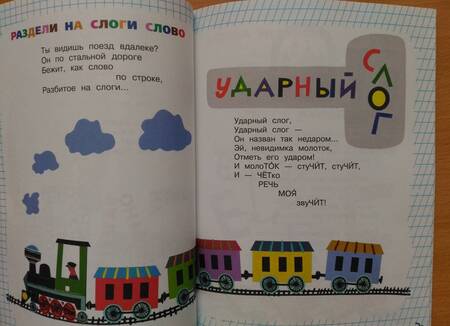 РАЗДЕЛИ НА СЛОГИ СЛОВО
Ты видишь поезд вдалеке?
Он по стальной дороге
Бежит, как слово
по строке,
Разбитое на слоги...
УДАРНЫЙ СЛОГ
Ударный слог,
Ударный слог —
Он назван так недаром...
Эй, невидимка молоток,
Отметь его ударом!
И молоТО́К — стуЧИ́Т, стуЧИ́Т,
И — ЧЁТко
РЕЧЬ
МОЯ́
звуЧИ́Т!